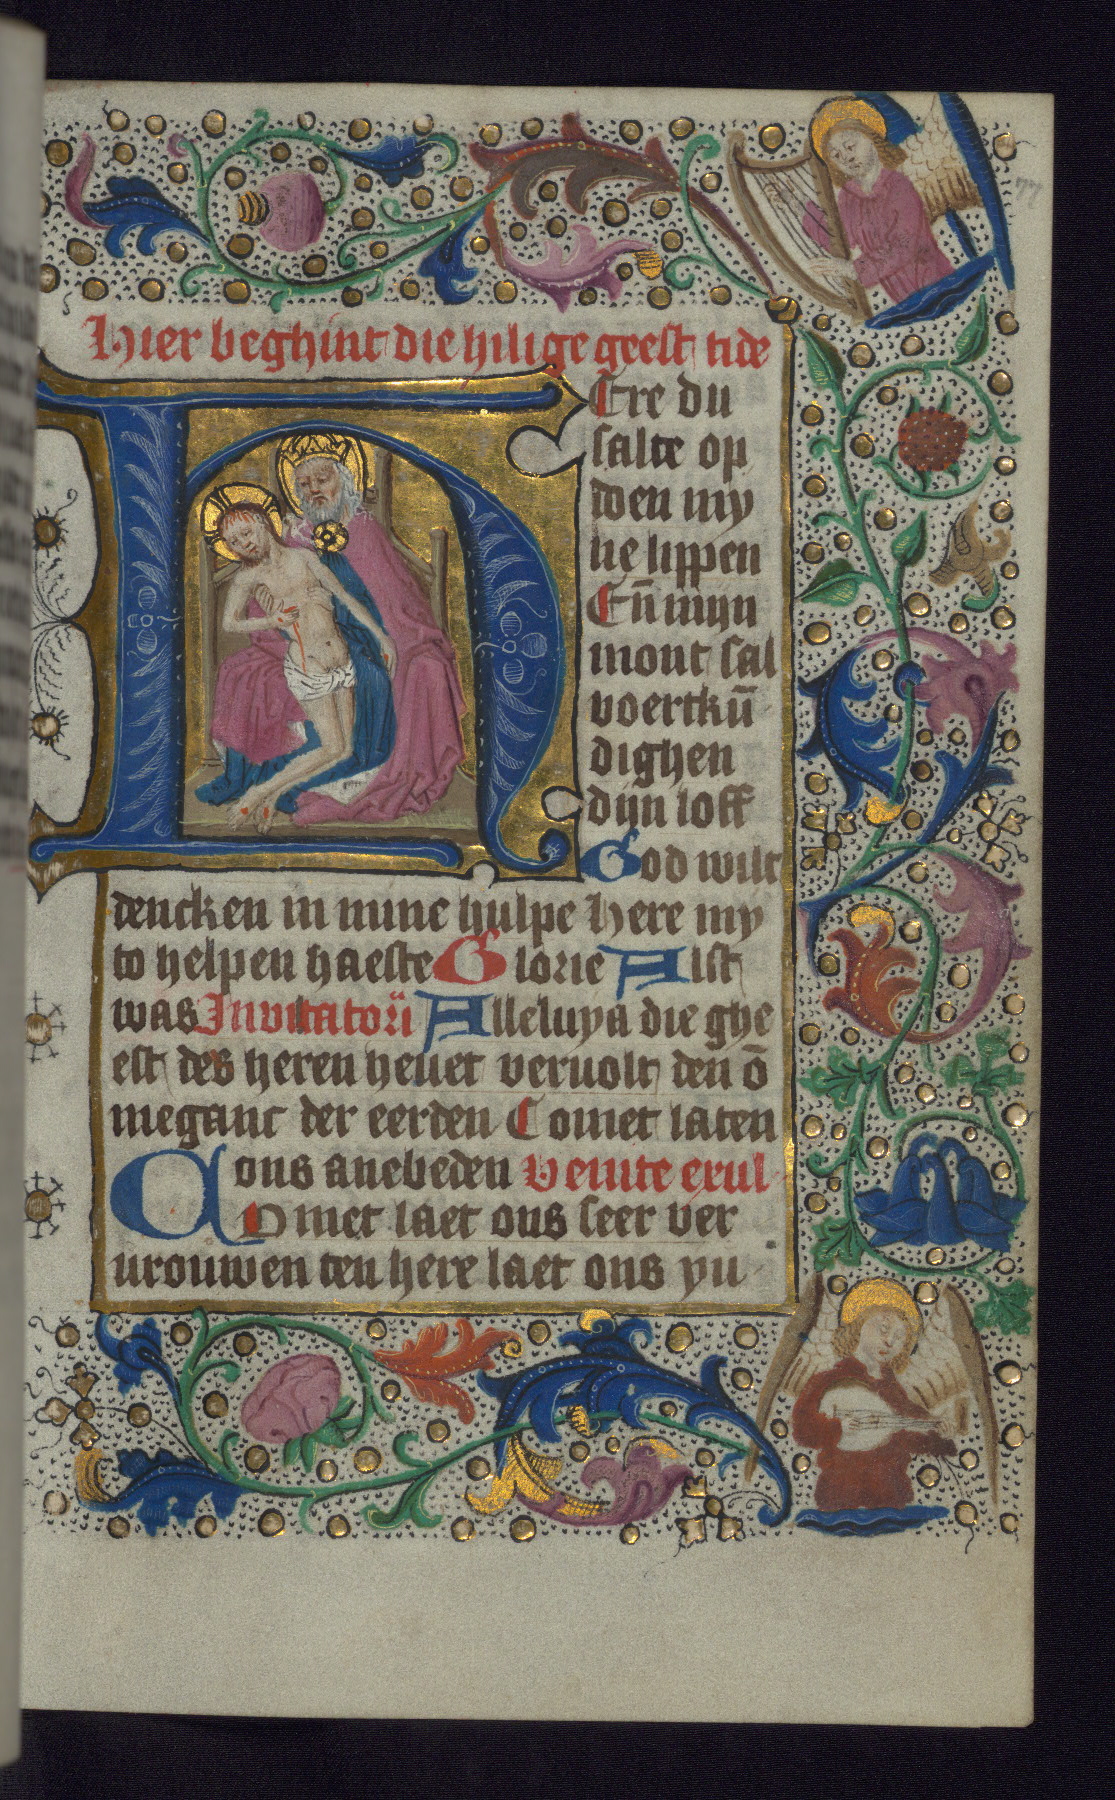 77
Hier beghint die hilige geest tide
HEre du
salte op
doen my
ne lippen
Eñ mijn
mont sal
voertkū
dighen
dijn loff
God wilt
dencken in mine hulpe here my
to helpen haeste Glorie Alst
was Invitatoriū Alleluya die ghe
est des heren hevet vervolt den ō
meganc der eerden Comet laten
ons anebeden Venite exul
COmet laet ons seer ver
vrouwen ten here laet ons yu